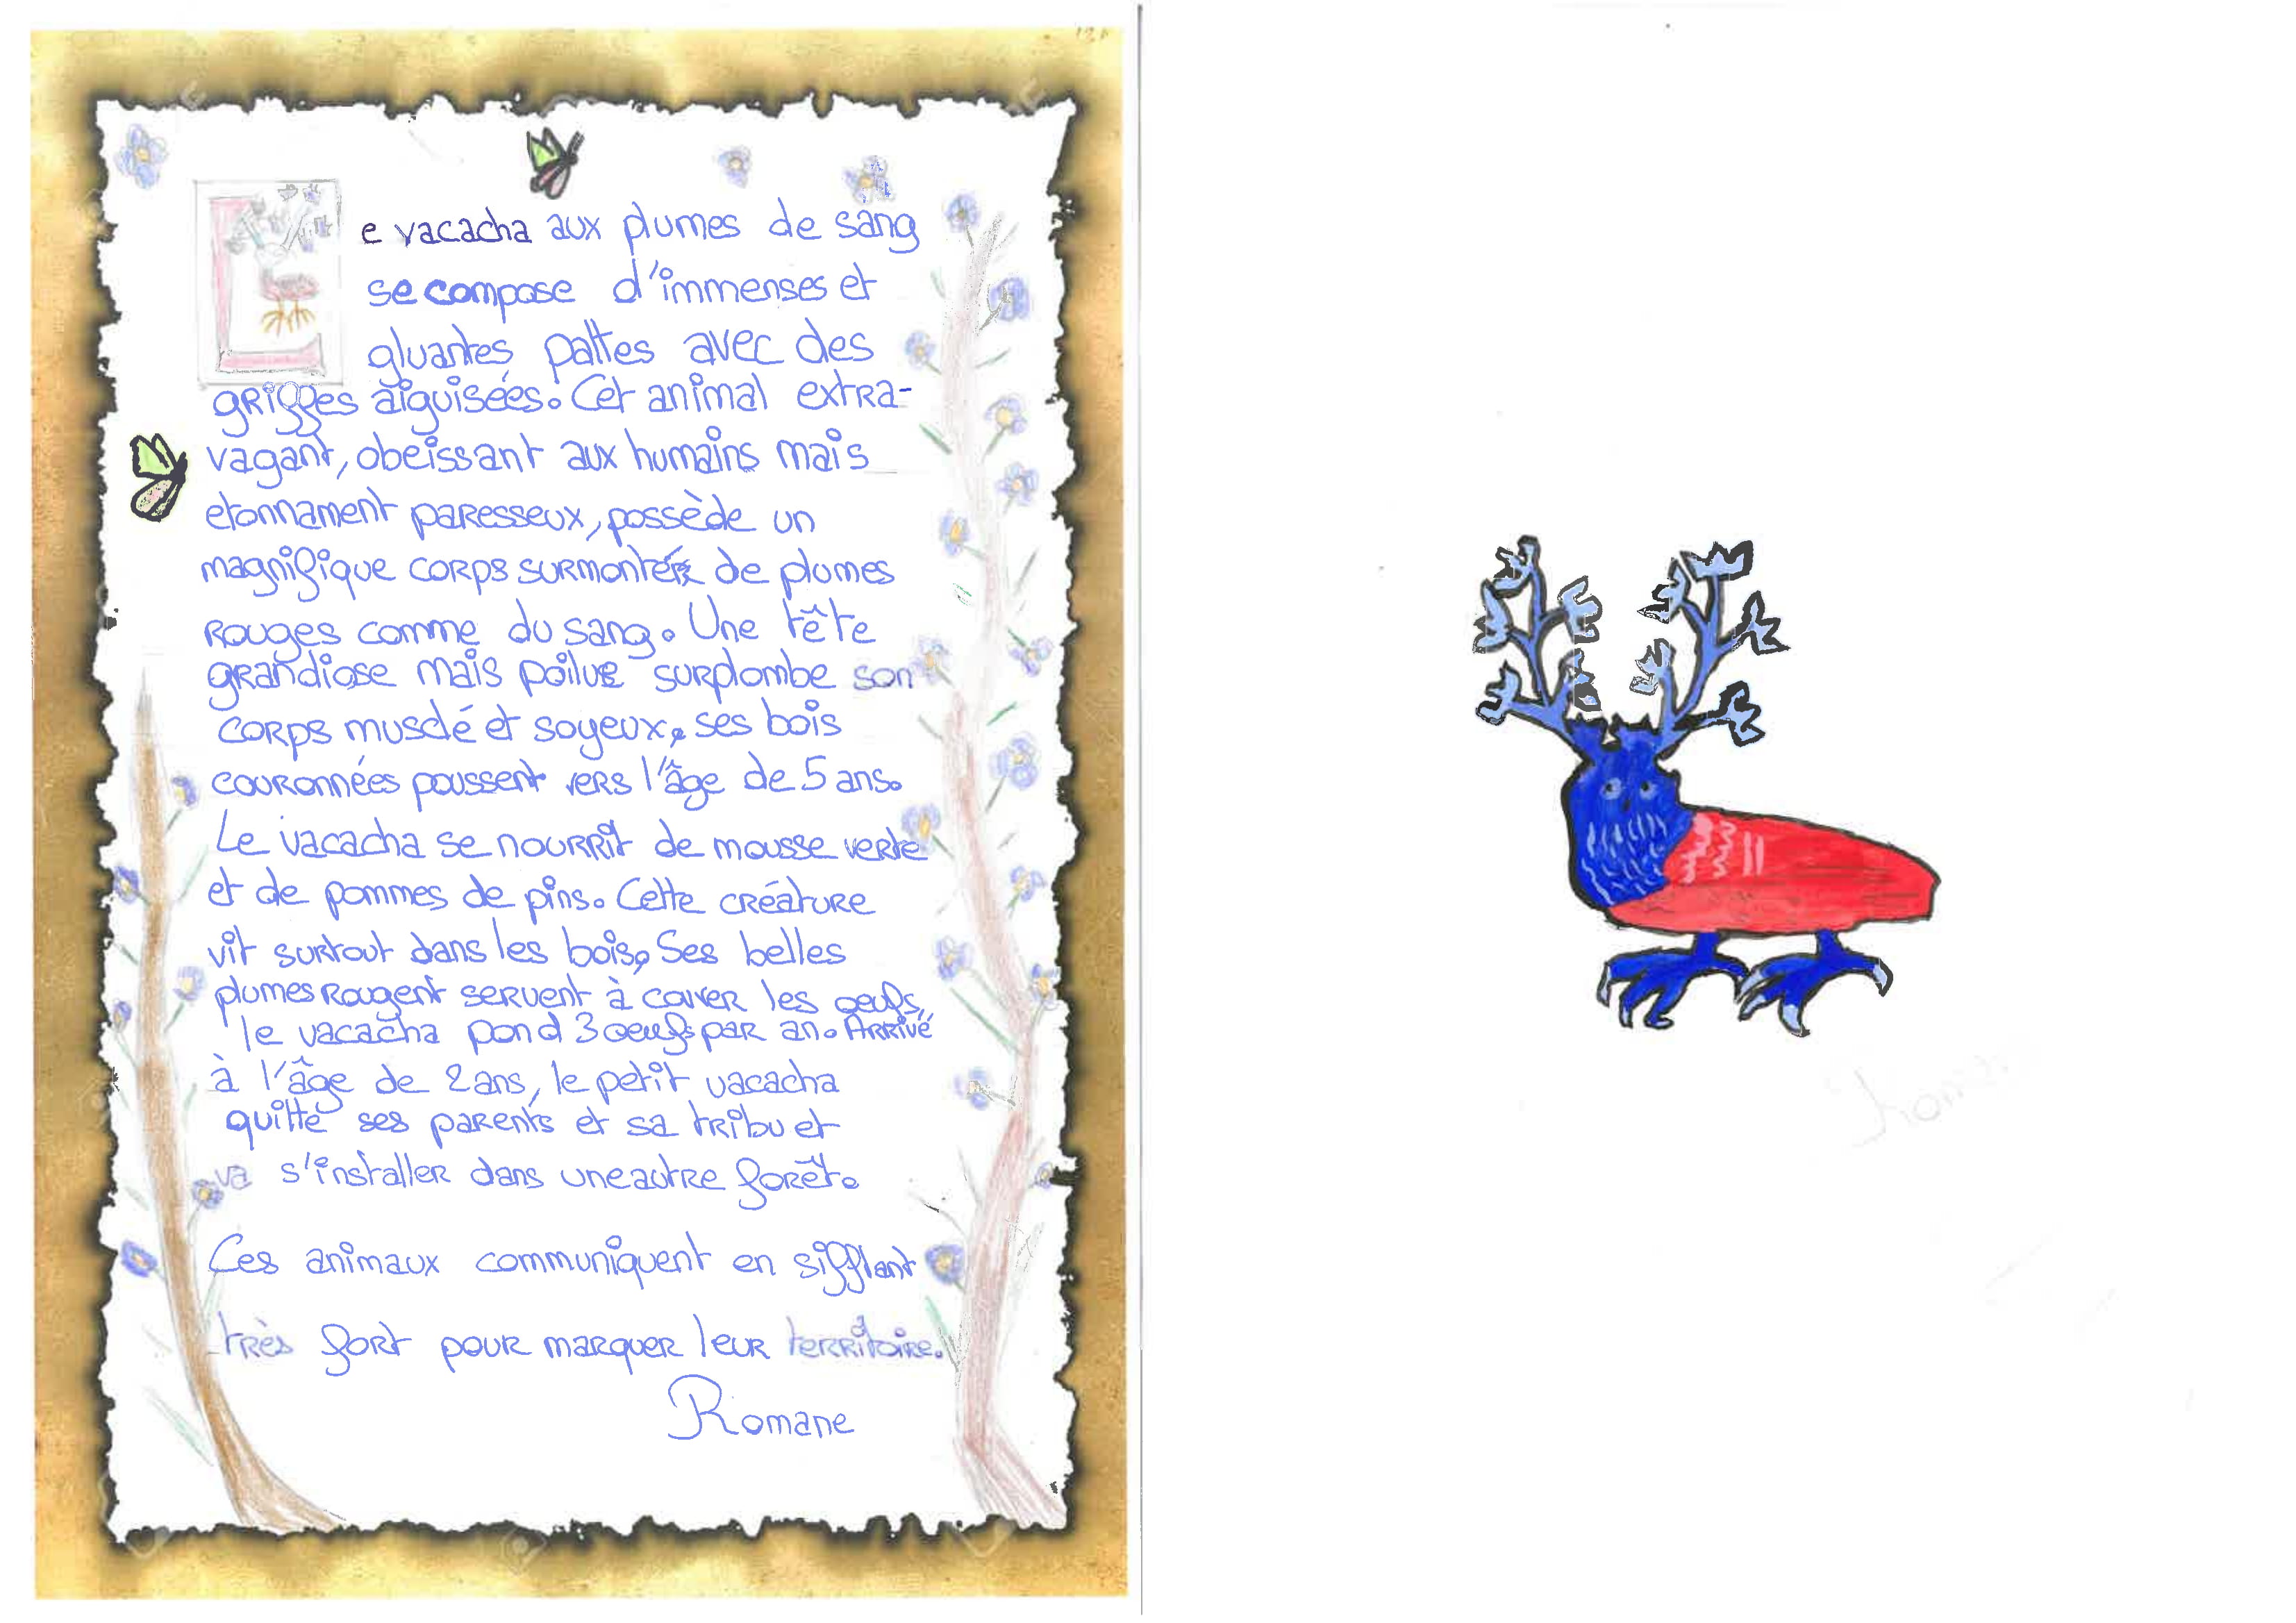 Le vacacha aux plumes de sang
se compose d'immenses et
gluantes pattes avec des
griffes aiguisées. Cet animal extra-
vagant, obeissant aux humains mais
etonnament paresseux, possède un
magnifique corps surmonté de plumes
rouges comme du sang. Une tête
grandiose mais poilue surplombe son
corps musclé et soyeux, ses bois
couronnées poussent vers l'âge de 5 ans.
Le vacacha se nourrit de mousse verte
et de pommes de pins. Cette créature
vit surtout dans les bois, Ses belles
plumes rougent servent à couver les oeufs,
le vacacha pond 3 oeufs par an. Arrivé
à l'âge de 2 ans, le petit vacacha
quitte ses parents et sa tribu et
va s'installer dans une autre forêt.
Ces animaux communiquent en sifflant
très fort pour marquer leur territoire.
Romane